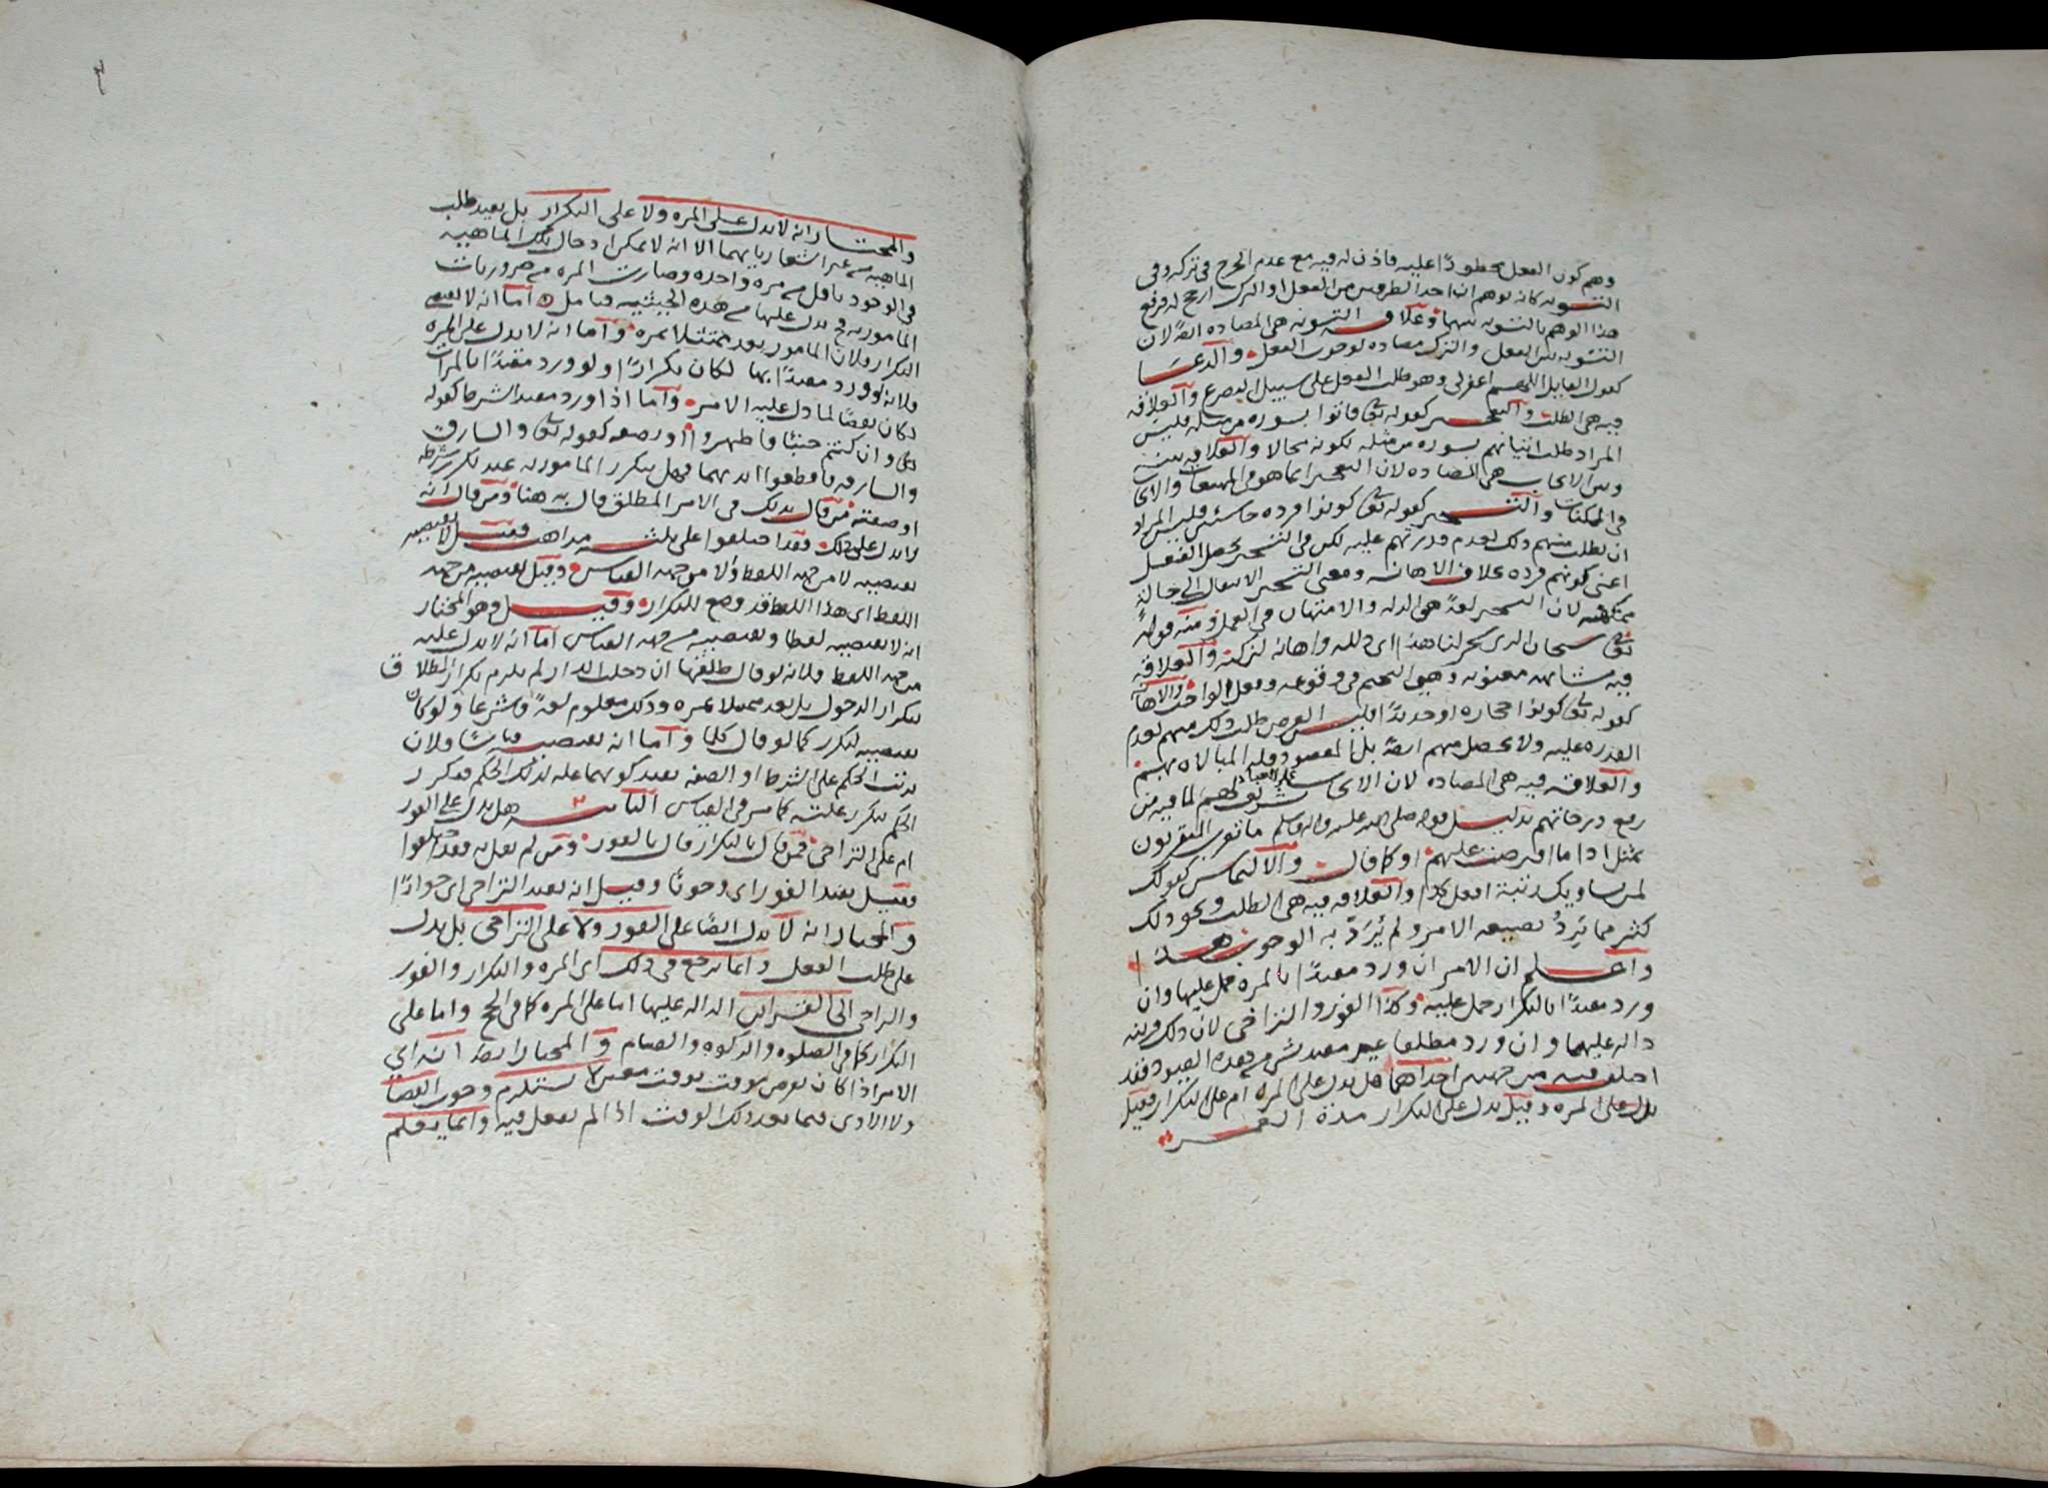 وهم كون الفعل محظورًا عليه فاذن له فيه مع عدم الحرج في تركه وفي
التسويه كانه توهم ان احد الطرفين من الفعل او الترك ارجح له فرفع
هذا الوهم بالتسويه بينهما وعلاقه التسويه هي المضاده ايضًا لان
التسويه بين الفعل والترك مضاده لوجوب الفعل والدعا
كقول القايل اللهم اغفر لي وهو طلب الفعل على سبيل التضرع والعلاقه
فيه هي الطلب والتعجيز كقوله تعالى فاتوا بسوره من مثله فليس
المراد طلب اتيانهم بسوره من مثله لكونه محالا والعلاقه بينه
وبين الايجاب هي المضاده لان التعجيز انما هو في الممتنعات والايجاب
في الممكنات والتسخير كقوله تعالى كونوا قرده خاسئين فليس المراد
ان يطلب منهم ذلك لعدم قدرتهم عليه لكن في التسخير يحصل الفعل
اعني كونهم قرده علاقه الاهانه ومعنى التسخير الانتقال الى حالة
ممتهنه لان التسخير لغةً هي الذله والامتهان في العمل ومنه قوله
تعالى سبحان الذي سخر لنا هذا اي ذلله واهانه لنركبه والعلاقه
فيه مشابهه معنويه وهي التحتم في وقوعه وفعل الواجب والاهانه
كقوله تعالى كونوا حجاره او حديدًا فليس الغرض طلب ذلك منهم لعدم
القدره عليه ولا يحصل منهم ايضًا بل المقصود قله المبالاه بهم
والعلاقه فيه هي المضاده لان الايجاب على العباد تشريف لهم لما فيه من
رفع درجاتهم بدليل قوله صلى الله عليه واله وسلم ما تقرب المتقربون
بمثل اداء ما افترضت عليهم او كما قال والالتماس كقولك
لمن يساويك رتبة افعل كذا والعلاقه فيه هي الطلب ونحو ذلك
كثير مما يَرِدُ بصيغه الامر ولم يُرَدْ به الوجوب هذا
واعلم ان الامر ان ورد مقيدًا بالمره حمل عليها وان
ورد مقيدًا بالتكرار حمل عليه وكذا الفور والتراخي لان ذلك قرينه
داله عليهما وان ورد مطلقا غير مقيد بشي من هذه القيود فقد
اختلف فيه من جهتين احداهما هل يدل على المره ام على التكرار فقيل
يدل على المره وقيل يدل على التكرار مدة العمر
والمختار انه لا يدل على المره ولا على التكرار بل يفيد طلب
الماهيه من غير اشعار بايهما الا انه لا يمكن ادخال تلك الماهيه
في الوجود باقل من مره واحده وصارت المره من ضروريات
المامور به فيدل عليها من هذه الحيثيه فتامل اما انه لا يقتضي
التكرار فلان المامور يعد ممتثلا بمره واما انه لا يدل على المره
فلانه لو ورد مقيدًا بها لكان تكرارًا ولو ورد مقيدًا بالمرات
لكان نقضًا لما دل عليه الامر واما اذا ورد مقيد الشرط كقوله
تعالى وان كنتم جنبًا فاطهروا او بصفه كقوله تعالى والسارق
والسارقه فاقطعوا ايديهما فهل يتكرر المامور به عند تكرر شرطه
او صفته فمن قال بذلك في الامر المطلق قال به هنا ومن قال انه
لا يدل على ذلك فقد اختلفوا على ثلثه مذاهب فقيل لا يقتضيه
يقتضيه لا من جهه اللفظ ولا من جهه القياس وقيل يقتضيه من جهه
اللفظ اي هذا اللفظ قد وضع للتكرار وقيل وهو المختار
انه لا يقتضيه لفظا ويقتضيه من جهه القياس اما انه لا يدل عليه
من جهه اللفظ فلانه لو قال طلقها ان دخلت الدار لم يلزم تكرار الطلاق
بتكرار الدخول بل يعد ممتثلا بمره وذلك معلوم لغةً وشرعًا ولو كان
يقتضيه لتكرر كما لو قال كلما واما انه يقتضيه قياسًا فلان
ترتب الحكم على الشرط او الصفه يفيد كونهما عله لذلك الحكم فيتكرر
الحكم بتكرر علته كما مر في القياس الثانيه هل يدل على الفور
ام على التراخي فمن قال بالتكرار قال بالفور ومن لم يقل به فقد اختلفوا
فقيل يفيد الفور اي وجوبًا وقيل انه يفيد التراخي اي جوازًا
والمختار انه لا يدل ايضًا على الفور ولا على التراخي بل يدل
على طلب الفعل وانما يرجع في ذلك اي المره والتكرار والفور
والتراخي الى القراين الداله عليها اما على المره كما في الحج واما على
التكرار كما في الصلوه والزكوه والصيام والمختار ايضًا انه اي
الامر اذا كان بفرض موقت بوقت معين لا يستلزم وجوب القضا
ولا الادى فيما بعد ذلك الوقت اذا لم يفعل فيه وانما يعلم